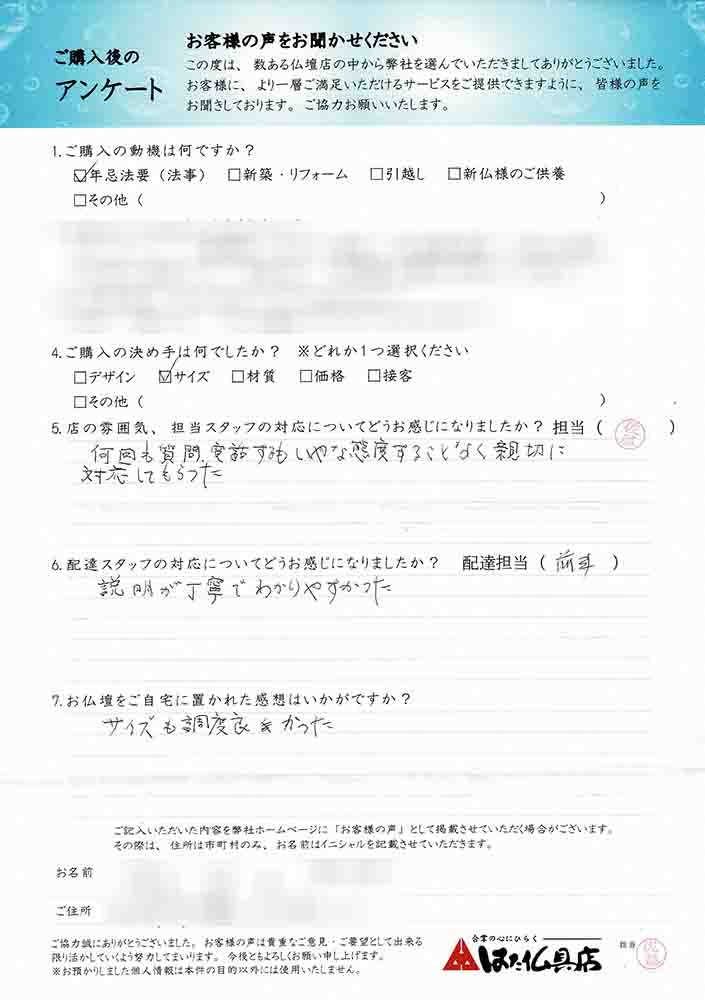 ご購入後の
アンケート
お客様の声をお聞かせください
この度は、数ある仏壇店の中から弊社を選んでいただきましてありがとうございました。
お客様に、より一層ご満足いただけるサービスをご提供できますように、皆様の声を
お聞きしております。ご協力お願いいたします。
1.ご購入の動機は何ですか？
☑年忌法要（法事） □新築・リフォーム □引越し □新仏様のご供養
□その他（ ）
4.ご購入の決め手は何でしたか？ ※どれか1つ選択ください
□デザイン ☑サイズ □材質 □価格 □接客
□その他（ ）
5.店の雰囲気、担当スタッフの対応についてどうお感じになりましたか？担当（ ）
何回も質問、電話するもいやな態度することなく親切に
対応してもらった
6.配達スタッフの対応についてどうお感じになりましたか？ 配達担当（ ）
説明が丁寧でわかりやすかった
7.お仏壇をご自宅に置かれた感想はいかがですか？
サイズも調度良きかった
ご記入いただいた内容を弊社ホームページに「お客様の声」として掲載させていただく場合がございます。
その際は、住所は市町村のみ、お名前はイニシャルを記載させていただきます。
お名前
ご住所
ご協力誠にありがとうございました。お客様の声は貴重なご意見・ご要望として出来る
限り活かしていくよう努力してまいります。今後ともよろしくお願い申し上げます。
※お預かりしました個人情報は本件の目的以外には使用いたしません。
合掌の心にひらく
はた仏具店
担当